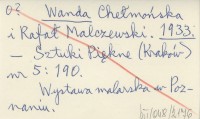 o? Wanda Chełmońska
i Rafał Malczewski. 1933.
— Sztuki Piękne (Kraków)
nr 5: 190.
Wystawa malarska w Poz-
naniu.